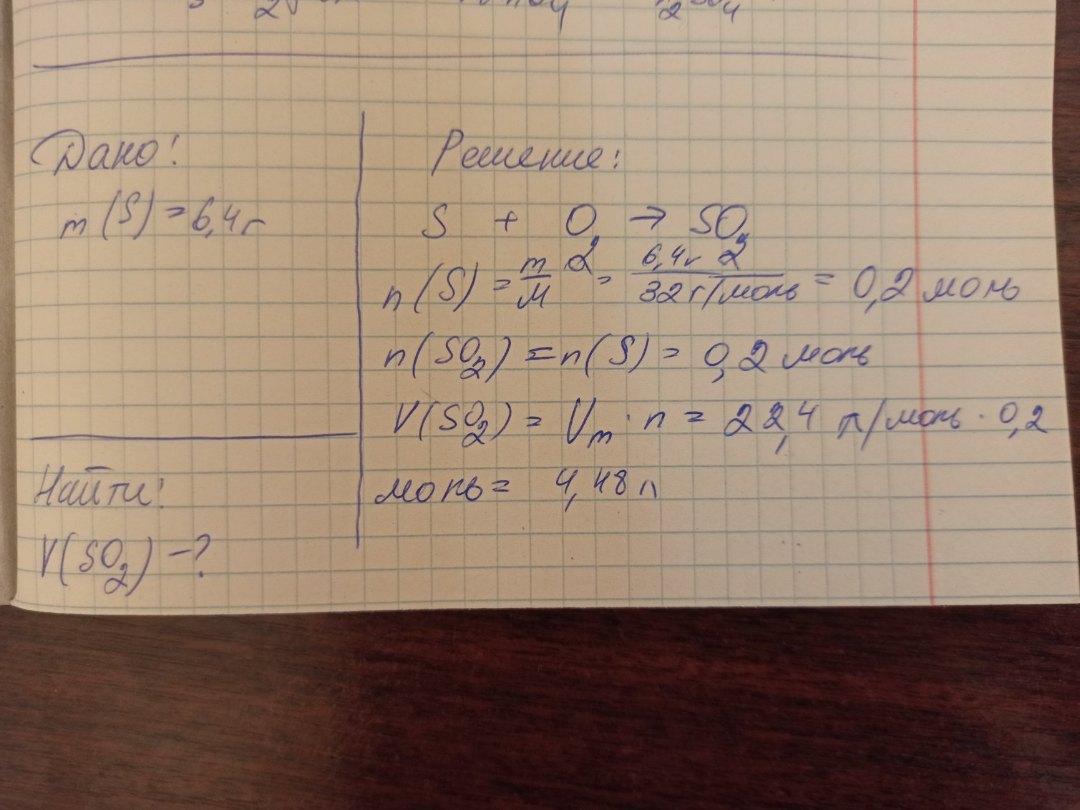 Дано!
m (S) = 6,4 г
Найти!
V(SO2) - ?
Решение:
S + O2 → SO2
n (S) = m/M = 6,4 г / 32 г/моль = 0,2 моль
n (SO2) = n (S) = 0,2 моль
V(SO2) = Vm · n = 22,4 л/моль · 0,2
моль = 4,48 л